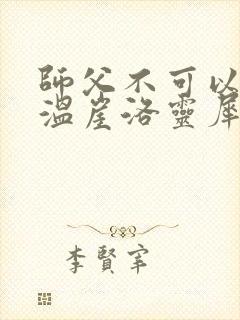 師父不可以
溫崖洛靈犀
李賢宰